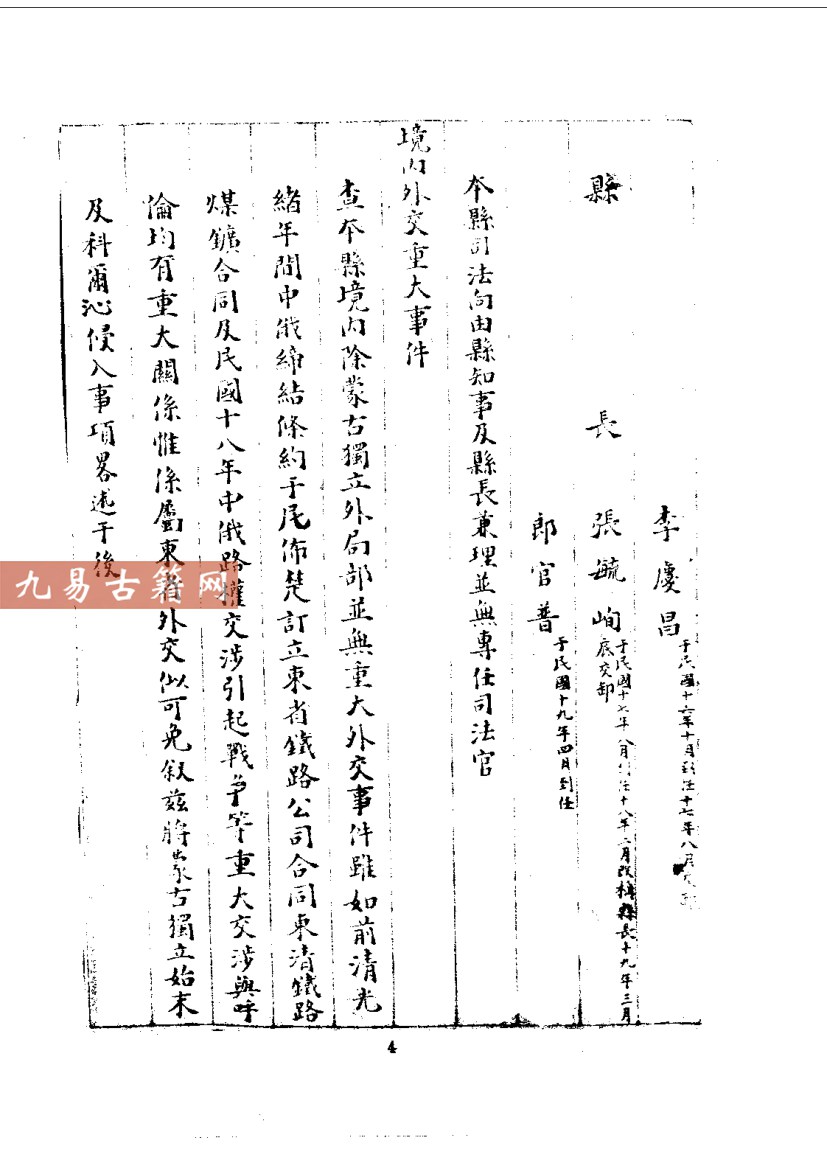 李慶昌 于民國十六年十月到任十七年八月
縣長 張毓峋 于民國十七年八月到任十八年二月改稱縣長十九年三月底交卸
郎官普 于民國十九年四月到任
本縣司法向由縣知事及縣長兼理並無專任司法官
境內外交重大事件
查本縣境內除蒙古獨立外局部並無重大外交事件雖如前清光
緒年間中俄締結條約于尾佈楚訂立東省鐵路公司合同東清鐵路
煤鑛合同及民國十八年中俄路權交涉引起戰爭等重大交涉與呼
倫均有重大關係惟係屬東省外交似可免叙茲將蒙古獨立始末
及科爾沁侵入事項畧述于後
九易古籍网
4